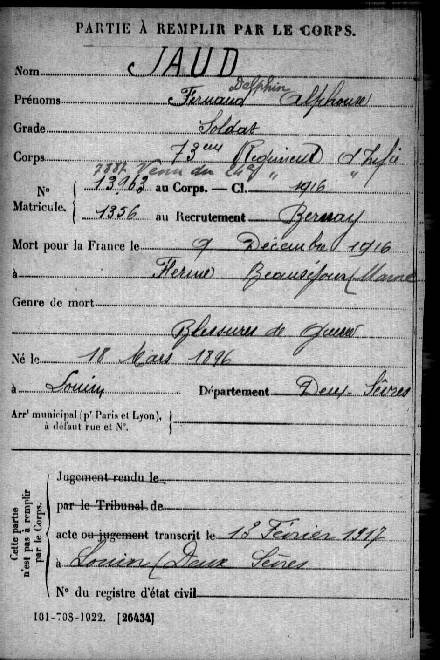 PARTIE À REMPLIR PAR LE CORPS.
Nom JAUD
Delphin
Prénoms Fernand Alphonse
Grade Soldat
Corps 73eme Régiment d'Infie
Venu du 
Nos Matricule. 13963 au Corps. — Cl. 1916
1356 au Recrutement Bernay
Mort pour la France le 9 Décembre 1916
à Ferme Beauséjour (Marne
Genre de mort
Blessures de guerre
Né le 18 Mars 1896
à Louin Département Deux-Sèvres
Arrt municipal (pr Paris et Lyon),
à défaut rue et N°.
Cette partie n'est pas à remplir par le Corps.
Jugement rendu le
par le Tribunal de
acte ou jugement transcrit le 13 Février 1917
à Louin (Deux Sèvres
N° du registre d'état civil
101-708-1922. [26434]